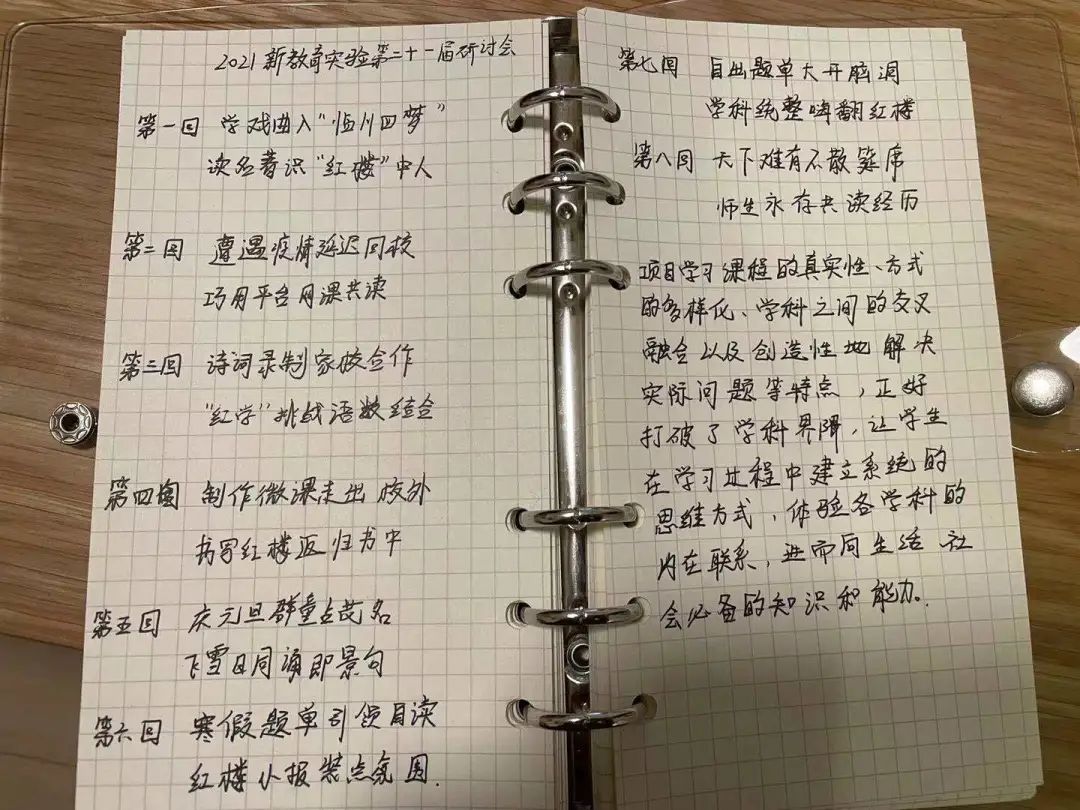 2021新教育实验第二十一届研讨会
第一回 学戏曲入“临川四梦”
读名著识“红楼”中人
第二回 遭遇疫情延迟回校
巧用平台网课共读
第三回 诗词录制家校合作
“红学”挑战语数结合
第四回 制作微课走出校外
书写红楼返归书中
第五回 庆元旦群童点茂名
飞雪日同诵即景句
第六回 寒假题单引领自读
红楼小报装点氛围.
第七回 自出题单大开脑洞
学科统整嗨翻红楼
第八回 天下难有不散筵席
师生永存共读经历
项目学习课程的真实性、方式
的多样化、学科之间的交叉
融合以及创造性地解决
实际问题等特点，正好
打破了学科界限，让学生
在学习过程中建立系统的
思维方式，体验各学科的
内在联系，进而同生活、社
会必备的知识和能力.